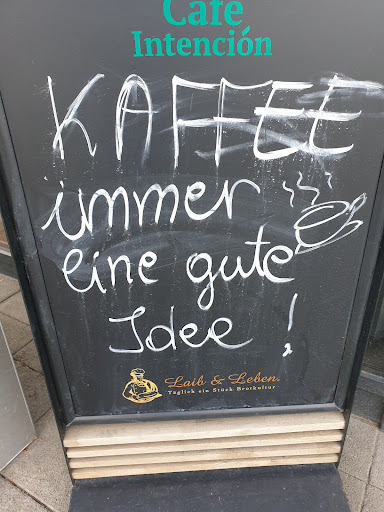 Café
Intención
KAFFEE
immer
eine gute
Idee!
Laib & Leben.
Täglich ein Stück Brotkultur